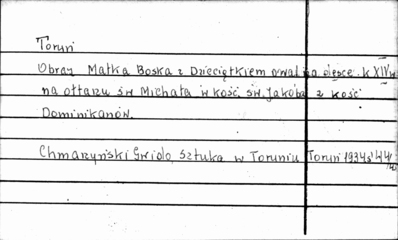 Toruń
Obraz Matka Boska z Dzieciątkiem owal na desce. k XIV w
na ołtarzu św Michała w kość. św. Jakoba z kość
Dominikanów.
Chmarzyński Gwido, Sztuka w Toruniu Toruń 1934 s 44